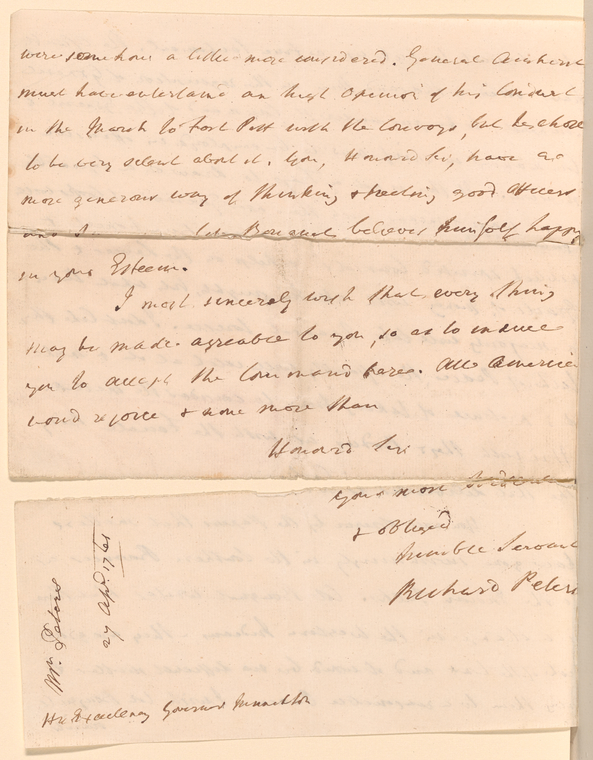 were somehow a little more considered. General Amherst
must have entertain'd an high Opinion of his Conduct
in the March to Fort Pitt with the Convoys, but he chose
to be very silent about it. You, Honour'd Sir, have a
more generous way of thinking & treating good Officers
and Bouquet believes himself happy
in your Esteem.
I most sincerely wish that every thing
may be made agreable to you, so as to induce
you to accept the Command here. All America
woud rejoice & none more than
Honour'd Sir
Your most Obedient
& obliged
humble Servant
Richard Peters
Mr. Peters
27 Apl. 1761
His Excellency Governor Monckton